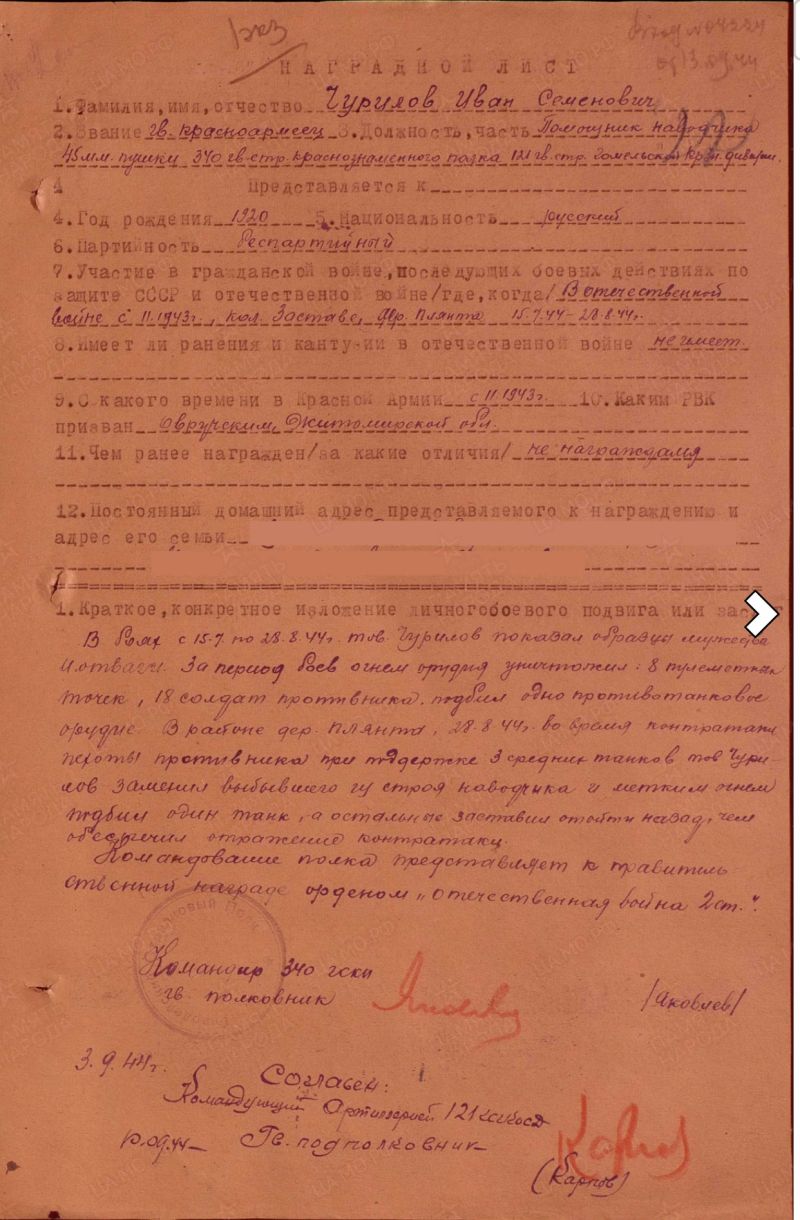 1 экз
Вход № 04224
от 13.09.44
НАГРАДНОЙ ЛИСТ
1. Фамилия, имя, отчество Чурилов Иван Семенович
2. Звание гв. красноармеец 3. Должность, часть Помощник наводчика
45 мм. пушки 340 гв. стр. краснознаменного полка 121 гв. стр. гомельской кр. зн. дивизии.
4 Представляется к
4. Год рождения 1920 5. Национальность русский
6. Партийность беспартийный
7. Участие в гражданской войне, последующих боевых действиях по
защите СССР и отечественной войне/где, когда/ В отечественной
войне с 11.1943г., кол. Заставе, дер. Плянта 15.7.44-28.8.44г.
8. Имеет ли ранения и кантузии в отечественной войне не имеет.
9. С какого времени в Красной Армии с 11.1943г. 10. Каким РВК
призван Овручским, Житомирской обл.
11. Чем ранее награжден/за какие отличия/ не награждался
12. Постоянный домашний адрес представляемого к награждению и
адрес его семьи
1. Краткое, конкретное изложение личного боевого подвига или зас
В боях с 15.7 по 28.8.44г. тов. Чурилов показал образцы мужества
и отваги. За период боев огнем орудия уничтожил: 8 пулеметных
точек, 18 солдат противника, подбил одно противотанковое
орудие. В районе дер. Плянта, 28.8.44г. во время контратаки
пехоты противника при поддержке 3 средних танков тов Чури-
лов заменил выбывшего из строя наводчика и метким огнем
подбил один танк, а остальные заставил отойти назад, чем
обеспечил отражение контратаки.
Командование полка представляет к правитель-
ственной награде орденом "Отечественная война 2 ст.".
Командир 340 гскп
гв. полковник /Яковлев/
3.9.44г.
Согласен:
Командующий Артиллерией 121
Гв. подполковник
(Карпов)